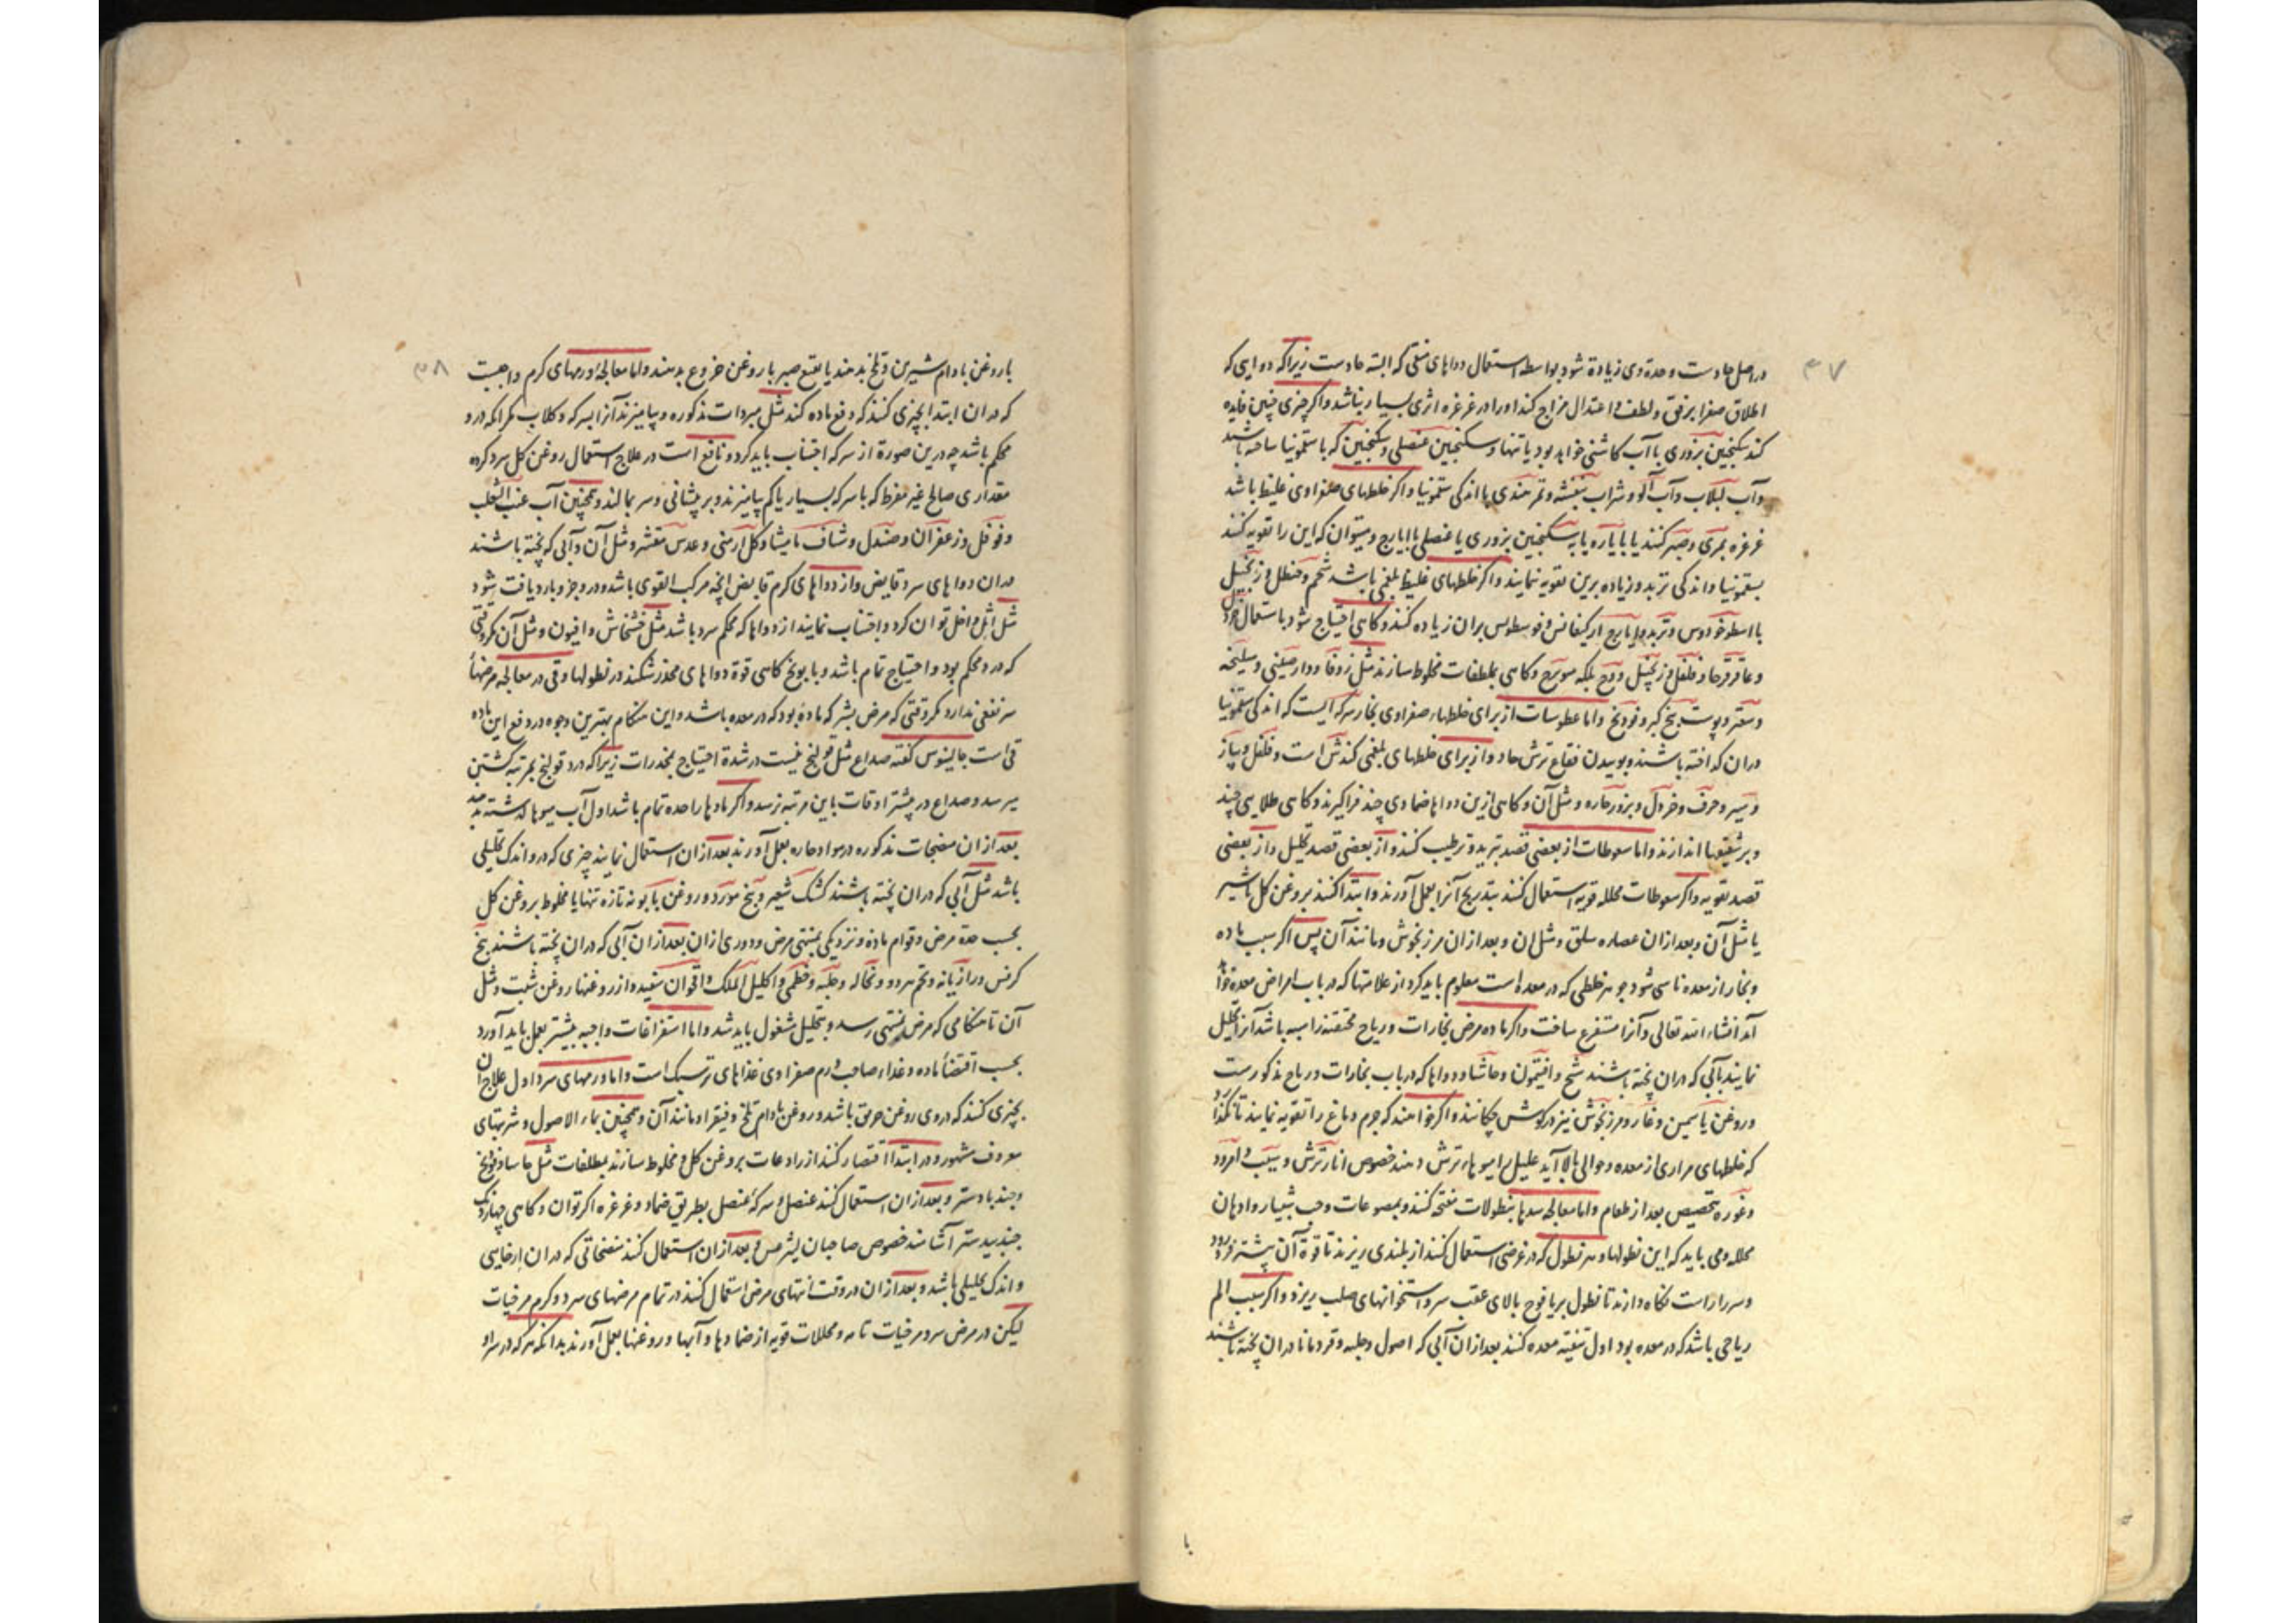 ۳۷
در اصل حادست وحدة وی زیادة شود بواسطه استعمال دواهای منقی که البته حادست زیراکه دوایی که
اطلاق صفرا برفق ولطف و اعتدال مزاج کند اورا در غرغره اثری بسیار نباشد واکر چیزی چنین فایده
کند سکنجبین بزوری با آب کاشنی خواهد بود یا تنها وسکنجبین عنصلی وسکنجبین که با سقمونیا ساخته باشند
وآب لبلاب وآب آلو وشراب بنفشه وتمر هندی با اندکی سقمونیا واکر خلطهای صفراوی غلیظ باشد
غرغره بمری وصبر کنند یا بایاره یا به سکنجبین بزوری یا عنصلی با ایارج ومیتوان که این را تقویه کنند
بسقمونیا واندکی تربد وزیاده برین تقویه نمایند واکر خلطهای غلیظ بلغمی باشد شحم حنظل و زنجبیل
با اسطوخودوس وتربد وایارج ارکیغانس وفوسطوس بران زیاده کنند وکاهی احتیاج شود باستعمال خردل
وعاقرقرحا وفلفل وزنجبیل ووج بلکه مویزج وکاهی بملطفات مخلوط سازند مثل زوفا ودارصینی وسلیخه
وسعتر وپوست بیخ کبر وفودنج واما عطوسات از برای خلطهاء صفراوی بخار سرکه ایست که اندکی سقمونیا
دران کداخته باشند وبوییدن فقاع ترش حاد واز برای خلطهای بلغمی کندش است وفلفل وپیاز
وسیر وحرف وخردل وبزور حاره ومثل آن وکاهی ازین دواها ضمادی چند فراکیرند وکاهی طلایی چند
وبر شقیقها اندازند واما سعوطات از بعضی قصد تبرید وترطیب کنند واز بعضی قصد تحلیل واز بعضی
قصد تقویه واکر سعوطات محلله قویه استعمال کنند بتدریج آنرا بعمل آورند وابتدا کنند بروغن کل باشیر
یا مثل آن وبعد ازان عصاره سلق ومثل ان وبعد ازان مرزنجوش ومانند آن پس اکر سبب ماده
وبخار از معده ناشی شود جوهر خلطی که در معده است معلوم باید کرد از علامتها که در باب امراض معده خواهد
آمد انشاء الله تعالی وآنرا مستفرغ ساخت واکر ماده مرض بخارات وریاح محتقنه راسیه باشد آنرا تحلیل
نمایند بآبی که دران پخته باشند شیح وافتیمون وحاشا ودواها که در باب بخارات وریاح مذکورست
وروغن یاسمین وغار ومرزنجوش نیز در کوش چکانند واکر خواهند که جرم دماغ را تقویه نمایند تا نکذارد
که خلطهای مراری از معده وحوالی بالا آید علیل را میوهاء ترش دهند خصوص انار ترش وسیب وامرود
وغوره بتخصیص بعد از طعام واما معالجه سدها بنطولات مفتحه کنند وبمضوغات وحب شبیار وادهان
محلله ومی باید که این نطولها وهر نطول که در غرضی استعمال کنند از بلندی ریزند تا قوة آن بیشتر فرو رود
وسر را راست نکاه دارند تا نطول بر یافوخ بالای عقب سر واستخوانهای صلب ریزد واکر سبب الم
ریاحی باشد که در معده بود اول تنقیه معده کنند بعد ازان آبی که اصول وحلبه وقردمانا دران پخته باشند
با
۳۸
با روغن بادام شیرین وتلخ بدهند یا نقیع صبر با روغن خروع بدهند واما معالجه ورمهای کرم واجبت
که دران ابتدا بچیزی کنند که دفع ماده کند مثل مبردات مذکوره وبیامیزند آنرا بسرکه وکلاب مکر آنکه درد
محکم باشد چه درین صورة از سرکه اجتناب باید کرد ونافع است در علاج استعمال روغن کل سرد کرده
مقداری صالح غیر مفرط که با سرکه بسیار یا کم بیامیزند وبر پیشانی وسر بمالند وهمچنین آب عنب الثعلب
وفوفل وزعفران وصندل وشیاف مامیثا وکل ارمنی وعدس مقشر ومثل آن وآبی که پخته باشند
دران دواهای سرد قابض واز دواهای کرم قابض انچه مرکب القوی باشد ودر وجزو بارد یافت شود
مثل اثل داخل توان کرد واجتناب نمایند از دواها که محکم سرد باشد مثل خشخاش وافیون ومثل آن مکر وقتی
که درد محکم بود واحتیاج تمام باشد وبابونج کاهی قوة دواهای مخدر شکند در نطولها وقی در معالجه مرضهاء
سر نفعی ندارد مکر وقتی که مرض بشرکه ماده بود که در معده باشد واین هنکام بهترین وجوه در دفع این ماده
قی است جالینوس کفته صداع مثل قولنج نیست در شدة احتیاج بمخدرات زیراکه درد قولنج بمرتبه کشتن
میرسد وصداع در بیشتر اوقات باین مرتبه نرسد واکر مادها را حده تمام باشد اول آب میوها کذشته بدهند
بعد ازان منضجات مذکوره در مواد حاره بعمل آورند بعد ازان استعمال نمایند چیزی که درو اندک تحلیلی
باشد مثل آبی که دران پخته باشند کشک شعیر وبیخ مورد وروغن بابونه تازه تنها یا مخلوط بروغن کل
بحسب حدة مرض وقوام ماده ونزدیکی بمنتهی مرض ودوری ازان بعد ازان آبی که دران پخته باشند بیخ
کرفس ورازیانه وتخم هر دو ونخاله وحلبه وخطمی واکلیل الملک واقحوان سفید واز روغنها روغن شبت ومثل
آن تا هنکامی که مرض بمنتهی رسد وبتحلیل مشغول باید شد واما استفراغات واجبه بیشتر بعمل باید آورد
بحسب اقتضاء ماده وغذاء صاحب ورم صفراوی غذاهای تر سبک است واما ورمهای سرد اول علاج ان
بچیزی کنند که دروی روغن حرمق باشد وروغن بادام تلخ وفیقرا ومانند آن وهمچنین بماء الاصول وشربتهای
معروف مشهور ودر ابتدا اقتصار کنند از رادعات بروغن کل ومخلوط سازند بملطفات مثل حاشا وفودنج
وجندبادستر وبعد ازان استعمال کنند عنصل وسرکهٔ عنصل بطریق ضماد وغرغره اکر توان وکاهی چهار دانک
جندبیدستر آشامند خصوص صاحبان لیثرغس وبعد ازان استعمال کنند منضجاتی که دران ارخایی
واندک تحلیلی باشد وبعد ازان در وقت انتهای مرض استعمال کنند در تمام مرضهای سرد وکرم مرخیات
لیکن در مرض سرد مرخیات تامه ومحللات قویه از ضمادها وآبها وروغنها بعمل آورند بدانکه هر که در سر او